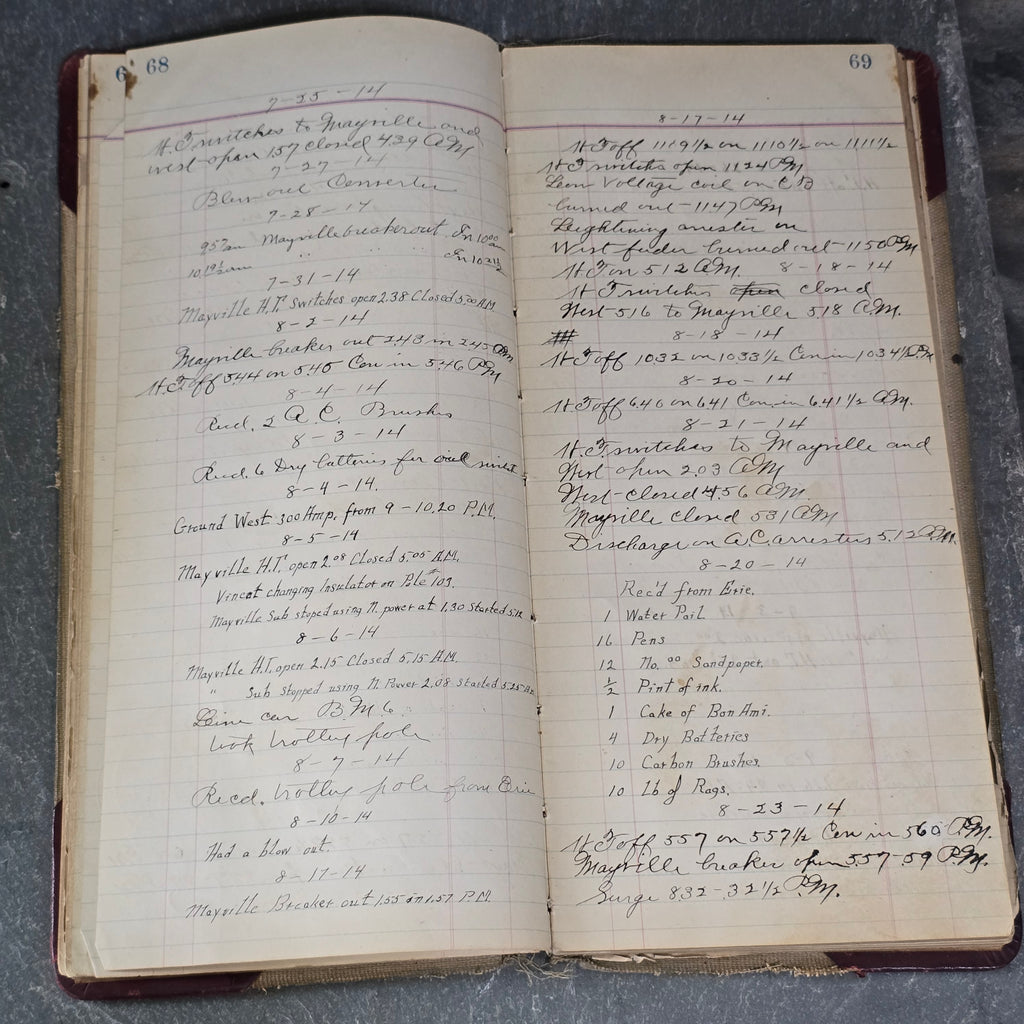 6
68
7-25-14
H.T. switches to Mayville and
west open 157 closed 4.39 A.M
7-27-14
Blew out Converter
7-28-14
9.57 am Mayville breaker out. In 10.00 am
10.19½ am " " " In 10.21½
7-31-14
Mayville H.T. Switches open 2.38 Closed 5.00 A.M.
8-2-14
Mayville breaker out 2.43 in 2.45 P.M
H.T. off 5.44 on 5.45 Con in 5.46 P.M
8-4-14
Recd. 2 A.C. Brushes
8-3-14
Recd. 6 Dry batteries for
8-4-14.
Ground West 300 Amp. from 9-10.20 P.M.
8-5-14
Mayville H.T. open 2.08 Closed 5.05 A.M.
Vincent changing Insulator on Pole #103.
Mayville Sub stoped using N. power at 1.30 Started 5.12
8-6-14
Mayville H.T. open 2.15 Closed 5.15 A.M.
" Sub stopped using N. Power 2.08 Started 5.25 A.M.
Line car B.M. 6
took trolley pole
8-7-14
Recd. trolley pole from Erie
8-10-14
Had a blow out.
8-17-14
Mayville Breaker out 1.55 in 1.57 P.M.
69
8-17-14
H.T. off 1119½ on 1110½ on 1111½
H.T. switches open 1124 P.M
Low Voltage coil on C B
burned out - 1147 P.M
Leightining arrester on
West feeder burned out - 1150 P.M
H.T. on 512 A.M. 8-18-14
H.T. switches open closed
West 516 to Mayville 518 A.M.
8-18-14
H.T. off 1032 on 1033½ Con in 1034½ P.M
8-20-14
H.T. off 6.40 on 641 Con. in 6.41½ A.M.
8-21-14
H.T. switches to Mayville and
West open 2.03 A.M
West-closed 4.56 A.M.
Mayville closed 531 A.M
Discharge on A.C. arresters 5.12 A.M.
8-20-14
Rec'd from Erie.
1 Water Pail
16 Pens
12 No. 00 Sandpaper.
½ Pint of ink.
1 Cake of Bon Ami.
4 Dry Batteries
10 Carbon Brushes
10 lb of Rags.
8-23-14
H.T. off 557 on 557½ Con in 560 P.M.
Mayville breaker open 557-59 P.M.
Surge 832-32½ P.M.